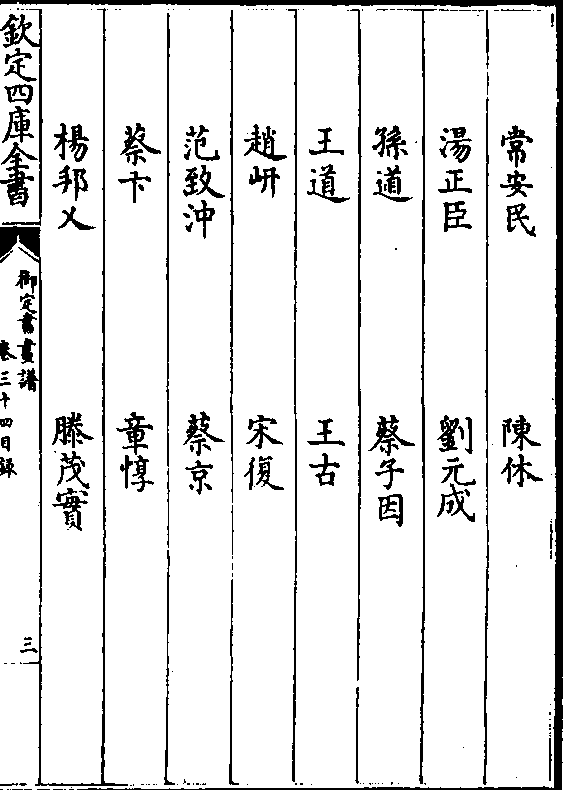 常安民　陳休
湯正臣　劉元成
孫道　蔡子因
王道　王古
趙岍　宋復
范致沖　蔡京
蔡卞　章惇
楊邦乂　滕茂實
欽定四庫全書
御定書畫譜
卷三十四目録
三